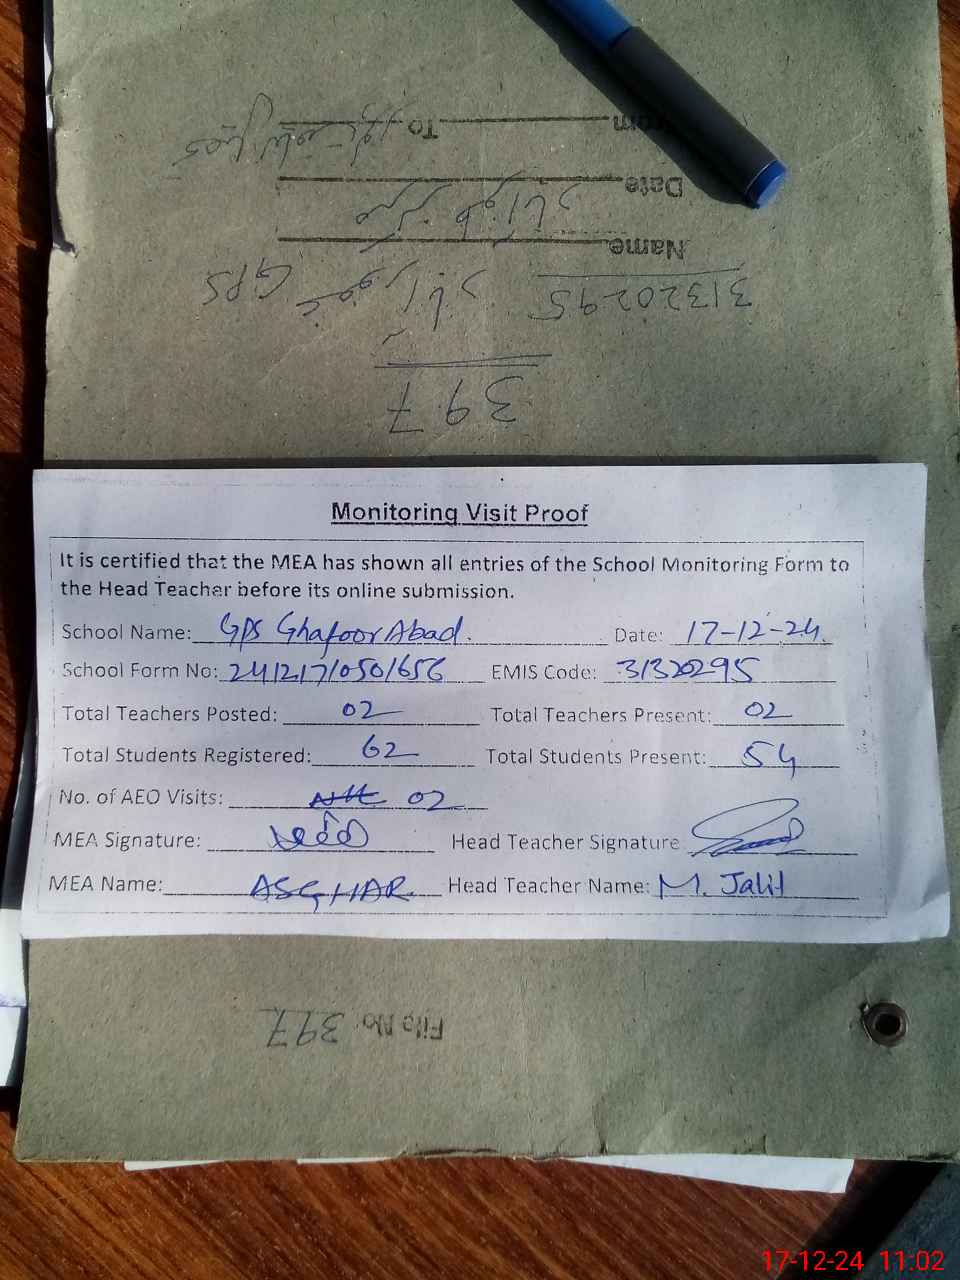 From To
Date
Name
31320295 GPS
397
Monitoring Visit Proof
It is certified that the MEA has shown all entries of the School Monitoring Form to
the Head Teacher before its online submission.
School Name: GPS Ghafoor Abad. Date: 17-12-24.
School Form No: 241217/0501656 EMIS Code: 31320295
Total Teachers Posted: 02 Total Teachers Present: 02
Total Students Registered: 62 Total Students Present: 54
No. of AEO Visits: 02
MEA Signature: Head Teacher Signature
MEA Name: ASGHAR. Head Teacher Name: M. Jalil
File No 397
17-12-24 11:02